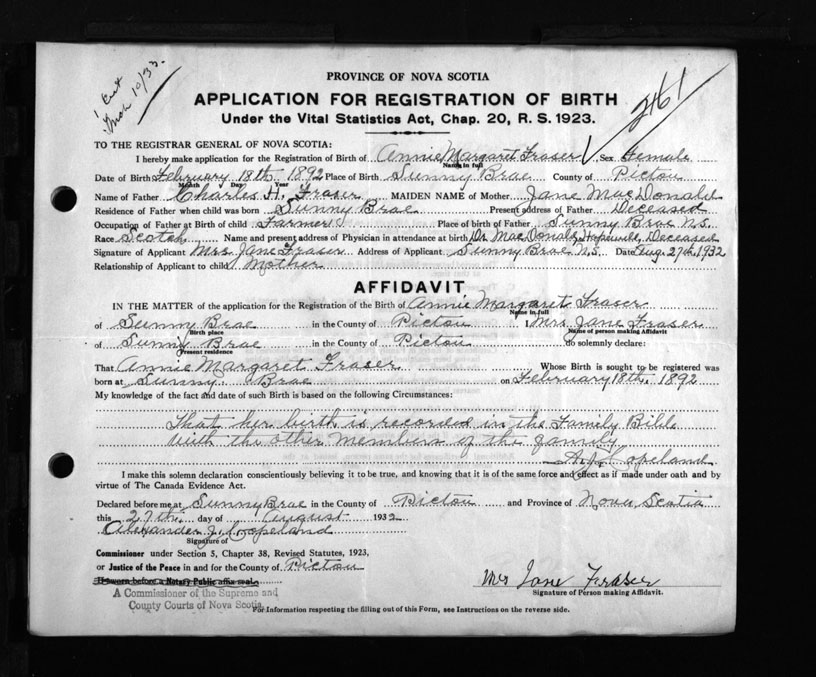 1 Cert
Mch 10/33.
2161
PROVINCE OF NOVA SCOTIA
APPLICATION FOR REGISTRATION OF BIRTH
Under the Vital Statistics Act, Chap. 20, R. S. 1923.
TO THE REGISTRAR GENERAL OF NOVA SCOTIA:
I hereby make application for the Registration of Birth of Annie Margaret Fraser Sex Female
Name in full
Date of Birth February 18th 1892 Place of Birth Sunny Brae County of Pictou
Month Day Year
Name of Father Charles H. Fraser MAIDEN NAME of Mother Jane MacDonald
Residence of Father when child was born Sunny Brae Present address of Father Deceased
Occupation of Father at Birth of child Farmer Place of birth of Father Sunny Brae N.S.
Race Scotch Name and present address of Physician in attendance at birth Dr MacDonald, Hopewell, Deceased
Signature of Applicant Mrs Jane Fraser Address of Applicant Sunny Brae N.S. Date Aug. 27th, 1932
Relationship of Applicant to child Mother
AFFIDAVIT
IN THE MATTER of the application for the Registration of the Birth of Annie Margaret Fraser
Name in full
of Sunny Brae in the County of Pictou I, Mrs Jane Fraser
Birth place Name of person making Affidavit
of Sunny Brae in the County of Pictou do solemnly declare:
Present residence
That Annie Margaret Fraser Whose Birth is sought to be registered was
born at Sunny Brae on February 18th, 1892
My knowledge of the fact and date of such Birth is based on the following Circumstances:
That her birth is recorded in the Family Bible
with the other members of the family
A.J. Copeland
I make this solemn declaration conscientiously believing it to be true, and knowing that it is of the same force and effect as if made under oath and by
virtue of The Canada Evidence Act.
Declared before me at Sunny Brae in the County of Pictou and Province of Nova Scotia
this 27th day of August 1932
Alexander J. Copeland
Signature of
Commissioner under Section 5, Chapter 38, Revised Statutes, 1923,
or Justice of the Peace in and for the County of Pictou
If sworn before a Notary Public affix seal.
A Commissioner of the Supreme and
County Courts of Nova Scotia
Mrs Jane Fraser
Signature of Person making Affidavit.
For Information respecting the filling out of this Form, see Instructions on the reverse side.